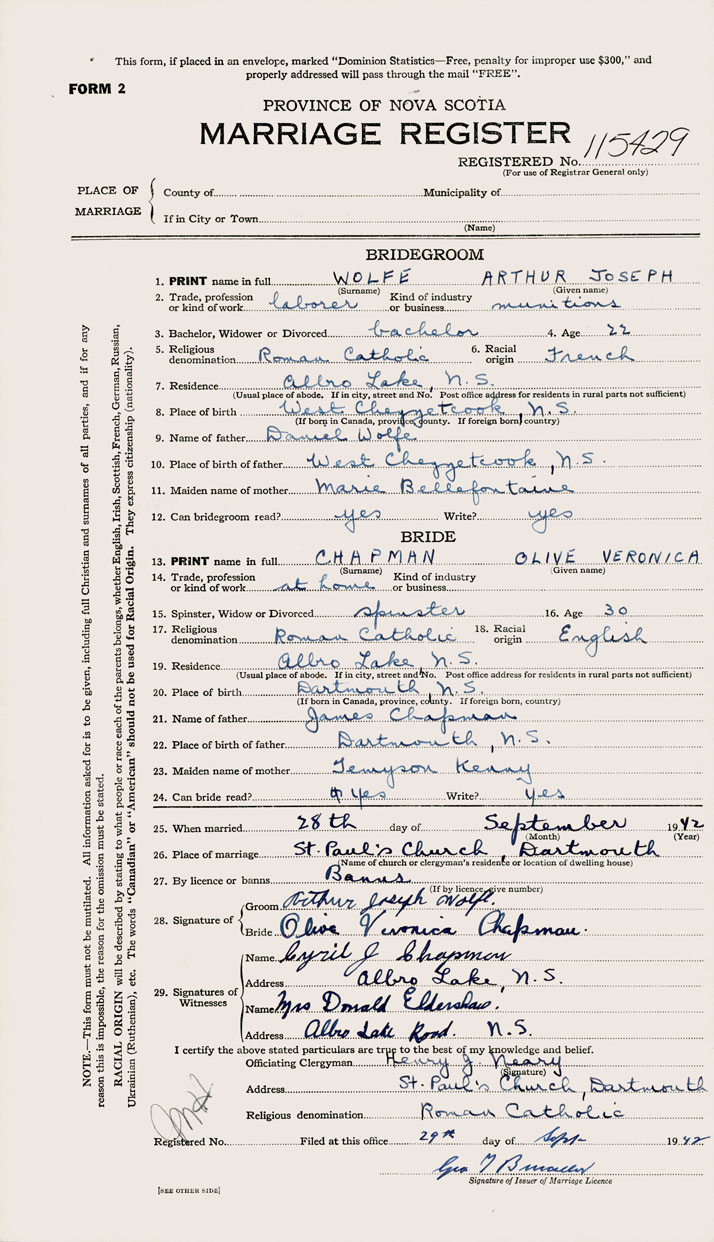 This form, if placed in an envelope, marked "Dominion Statistics—Free, penalty for improper use $300," and
properly addressed will pass through the mail "FREE".
FORM 2
PROVINCE OF NOVA SCOTIA
MARRIAGE REGISTER
REGISTERED No. 115429
(For use of Registrar General only)
PLACE OF MARRIAGE
County of Municipality of
If in City or Town
(Name)
BRIDEGROOM
1. PRINT name in full WOLFE ARTHUR JOSEPH
(Surname) (Given name)
2. Trade, profession or kind of work laborer Kind of industry or business munitions
3. Bachelor, Widower or Divorced bachelor 4. Age 22
5. Religious denomination Roman Catholic 6. Racial origin French
7. Residence Albro Lake, N.S.
(Usual place of abode. If in city, street and No. Post office address for residents in rural parts not sufficient)
8. Place of birth West Chezzetcook, N.S.
(If born in Canada, province, county. If foreign born, country)
9. Name of father Daniel Wolfe
10. Place of birth of father West Chezzetcook, N.S.
11. Maiden name of mother Marie Bellefontaine
12. Can bridegroom read? yes Write? yes
BRIDE
13. PRINT name in full CHAPMAN OLIVE VERONICA
(Surname) (Given name)
14. Trade, profession or kind of work at home Kind of industry or business
15. Spinster, Widow or Divorced spinster 16. Age 30
17. Religious denomination Roman Catholic 18. Racial origin English
19. Residence Albro Lake, N.S.
(Usual place of abode. If in city, street and No. Post office address for residents in rural parts not sufficient)
20. Place of birth Dartmouth, N.S.
(If born in Canada, province, county. If foreign born, country)
21. Name of father James Chapman
22. Place of birth of father Dartmouth, N.S.
23. Maiden name of mother Temyson Kenny
24. Can bride read? yes Write? yes
25. When married 28th day of September 1942
(Month) (Year)
26. Place of marriage St. Paul's Church, Dartmouth
(Name of church or clergyman's residence or location of dwelling house)
27. By licence or banns Banns
(If by licence give number)
28. Signature of
Groom Arthur Joseph Wolfe.
Bride Olive Veronica Chapman.
29. Signatures of Witnesses
Name Cyril J Chapman
Address Albro Lake, N.S.
Name Mrs Donald Eldershaw.
Address Albro Lake Road. N.S.
I certify the above stated particulars are true to the best of my knowledge and belief.
Officiating Clergyman Henry J. Neary
(Signature)
Address St. Paul's Church, Dartmouth
Religious denomination Roman Catholic
Registered No. Filed at this office 29th day of Sept- 1942
Geo
Signature of Issuer of Marriage Licence
[SEE OTHER SIDE]
NOTE.—This form must not be mutilated. All information asked for is to be given, including full Christian and surnames of all parties, and if for any
reason this is impossible, the reason for the omission must be stated.
RACIAL ORIGIN will be described by stating to what people or race each of the parents belongs, whether English, Irish, Scottish, French, German, Russian,
Ukrainian (Ruthenian), etc. The words "Canadian" or "American" should not be used for Racial Origin. They express citizenship (nationality).